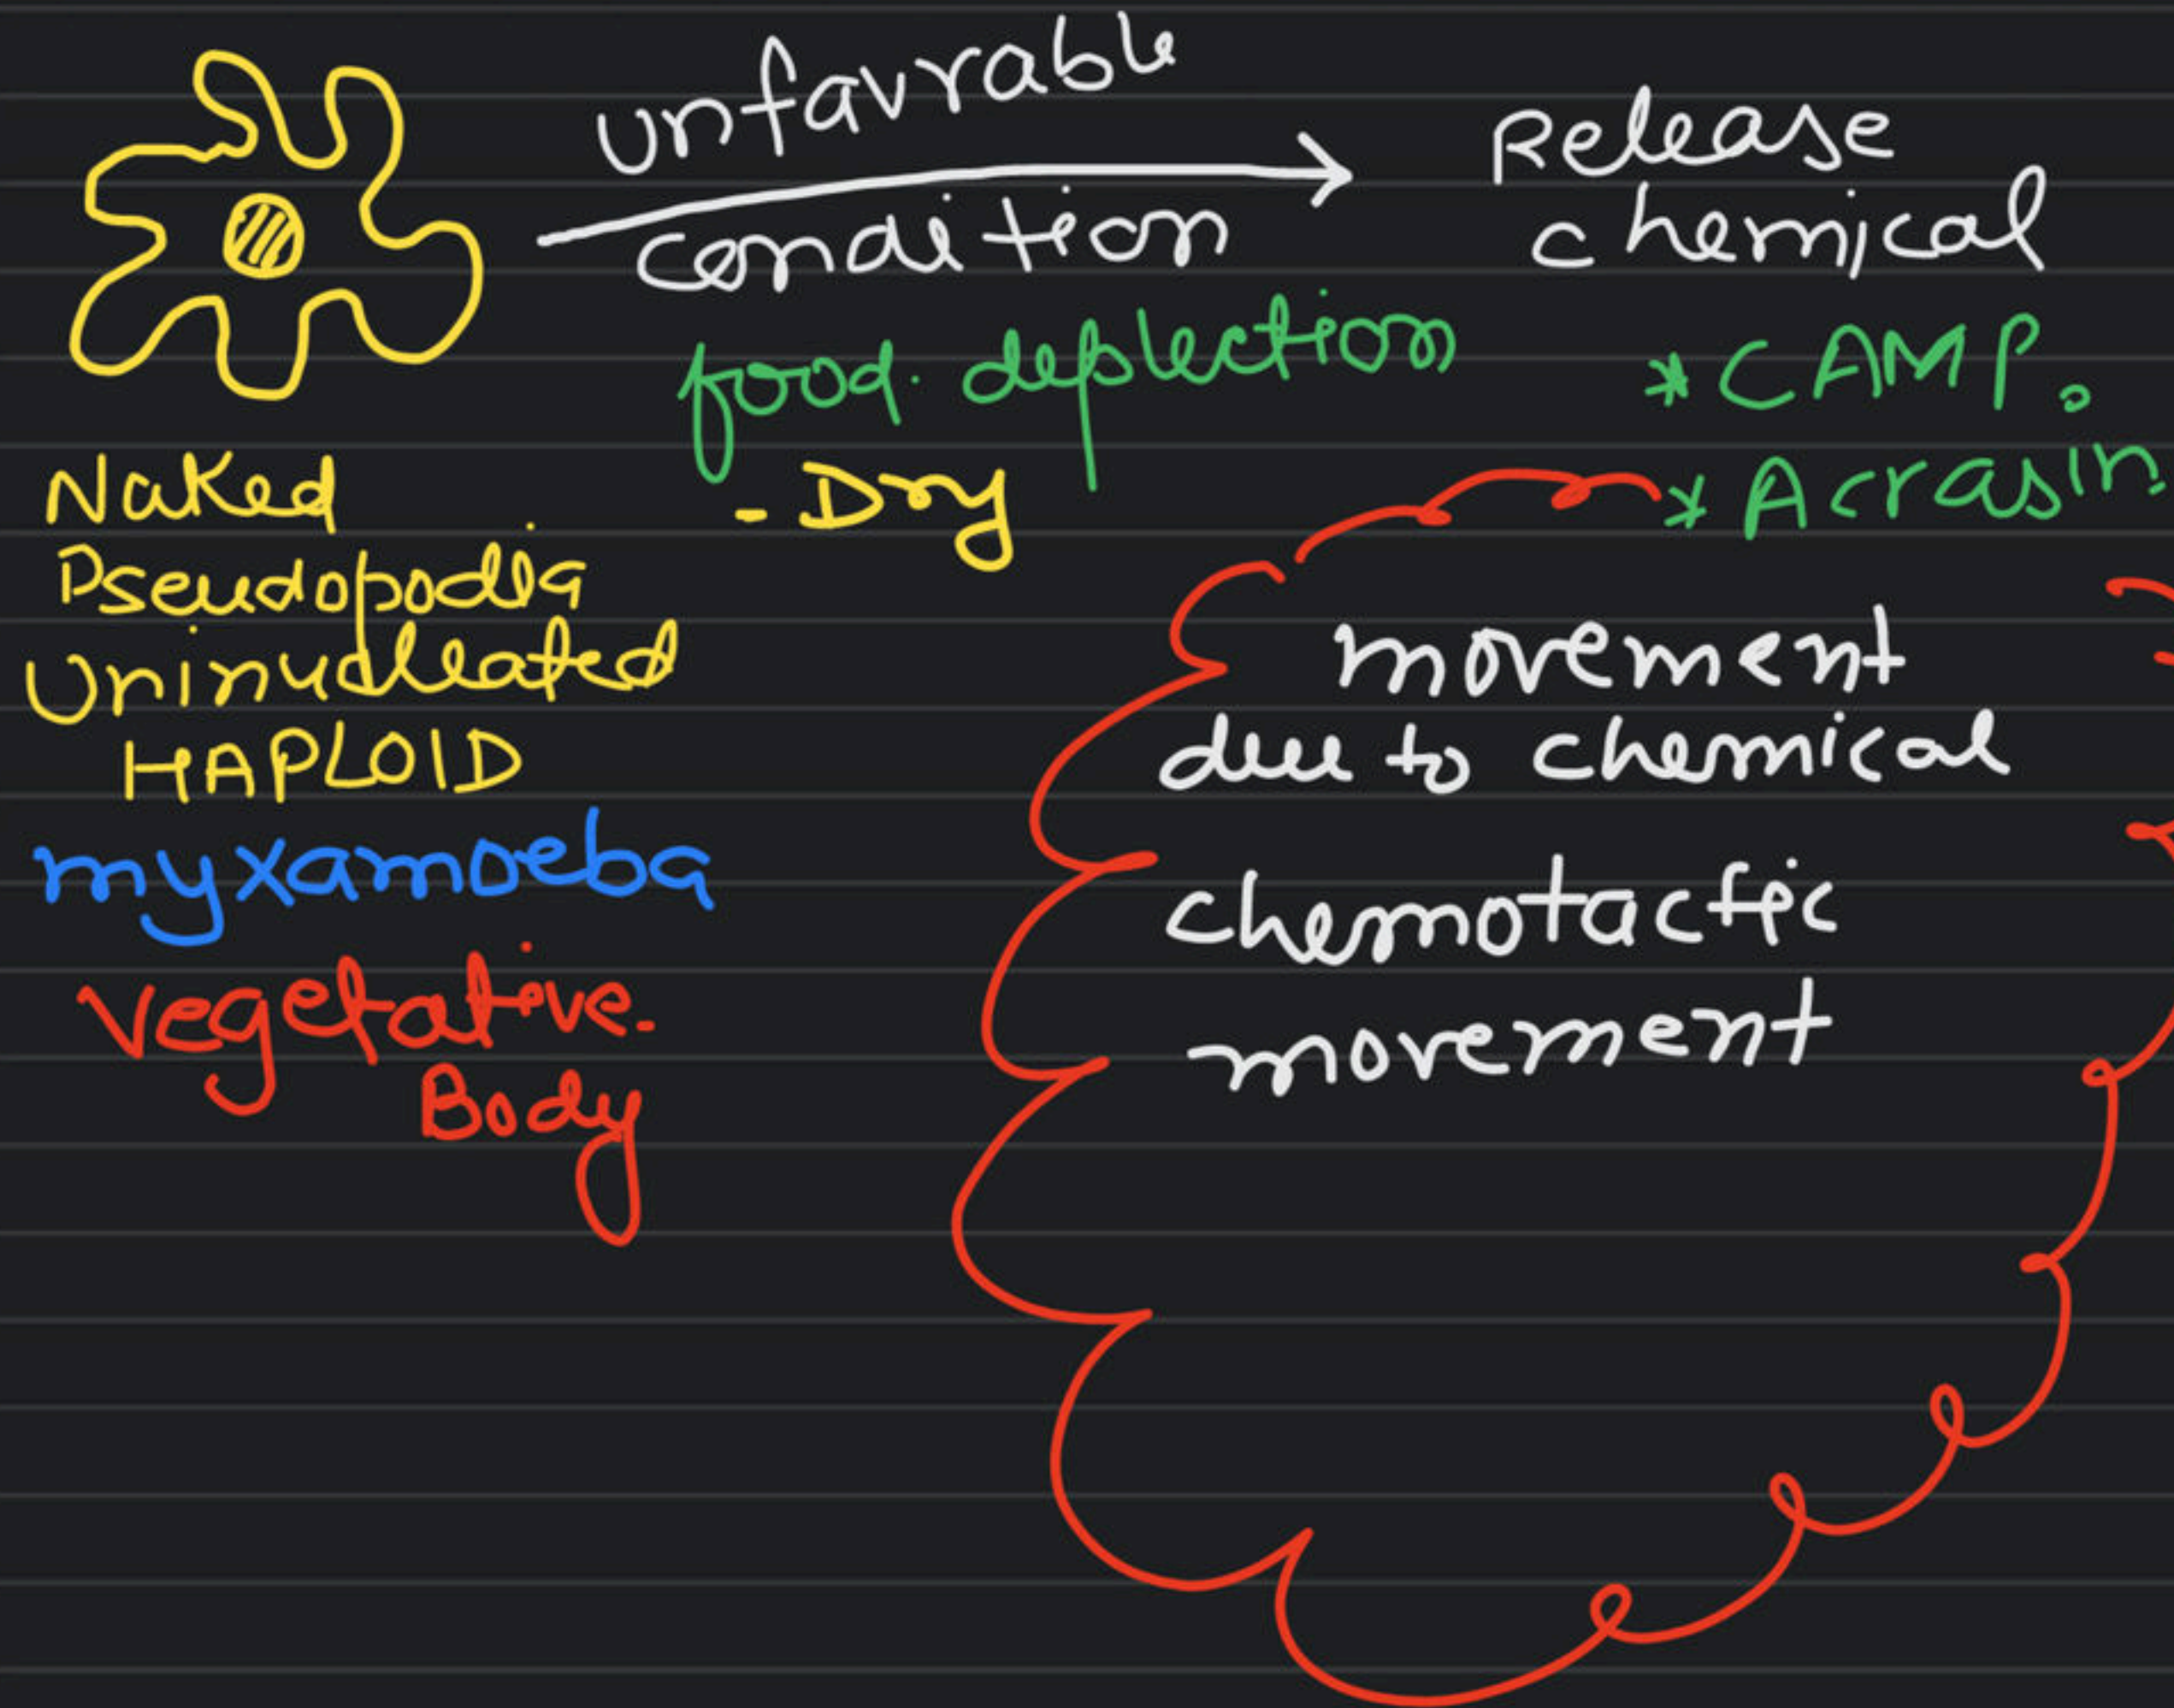 Unfavrable
condition
Release
chemical
food deplection
* CAMP.
- Dry
* Acrasin
Naked
Pseudopodia
Uninucleated
HAPLOID
myxamoeba
vegetative-
Body
movement
due to chemical
chemotactic
movement